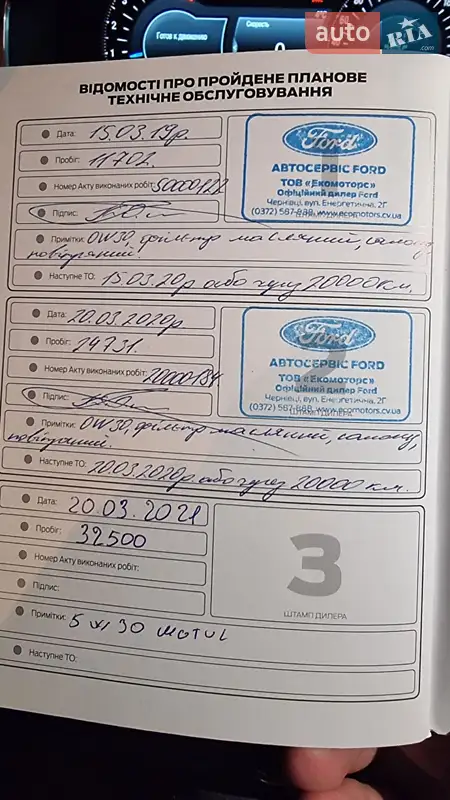 Готов к движению
Скорость
0
auto RIA .com
ВІДОМОСТІ ПРО ПРОЙДЕНЕ ПЛАНОВЕ
ТЕХНІЧНЕ ОБСЛУГОВУВАННЯ
Дата: 15.03.19р.
Пробіг: 11702.
Номер Акту виконаних робіт: 50000122
Підпис:
Примітки: 0W30, фільтр масляний, салону,
повітряний.
Наступне ТО: 15.03.20р або чрез 20000км.
1
Ford
АВТОСЕРВІС FORD
ТОВ «Екомоторс»
Офіційний дилер Ford
Чернівці, вул. Енергетична, 2Г
(0372) 567-888, www.ecomotors.cv.ua
Дата: 20.03.2020р.
Пробіг: 24731.
Номер Акту виконаних робіт: 20000184
Підпис:
Примітки: 0W30, фільтр масляний, салону,
повітряний.
Наступне ТО: 20.03.2020р або чрез 20000 км.
2
Ford
АВТОСЕРВІС FORD
ТОВ «Екомоторс»
Офіційний дилер Ford
Чернівці, вул. Енергетична, 2Г
(0372) 567-888, www.ecomotors.cv.ua
Дата: 20.03.2021
Пробіг: 32500
Номер Акту виконаних робіт:
Підпис:
Примітки: 5 W 30 MOTUL
Наступне ТО:
3
ШТАМП ДИЛЕРА